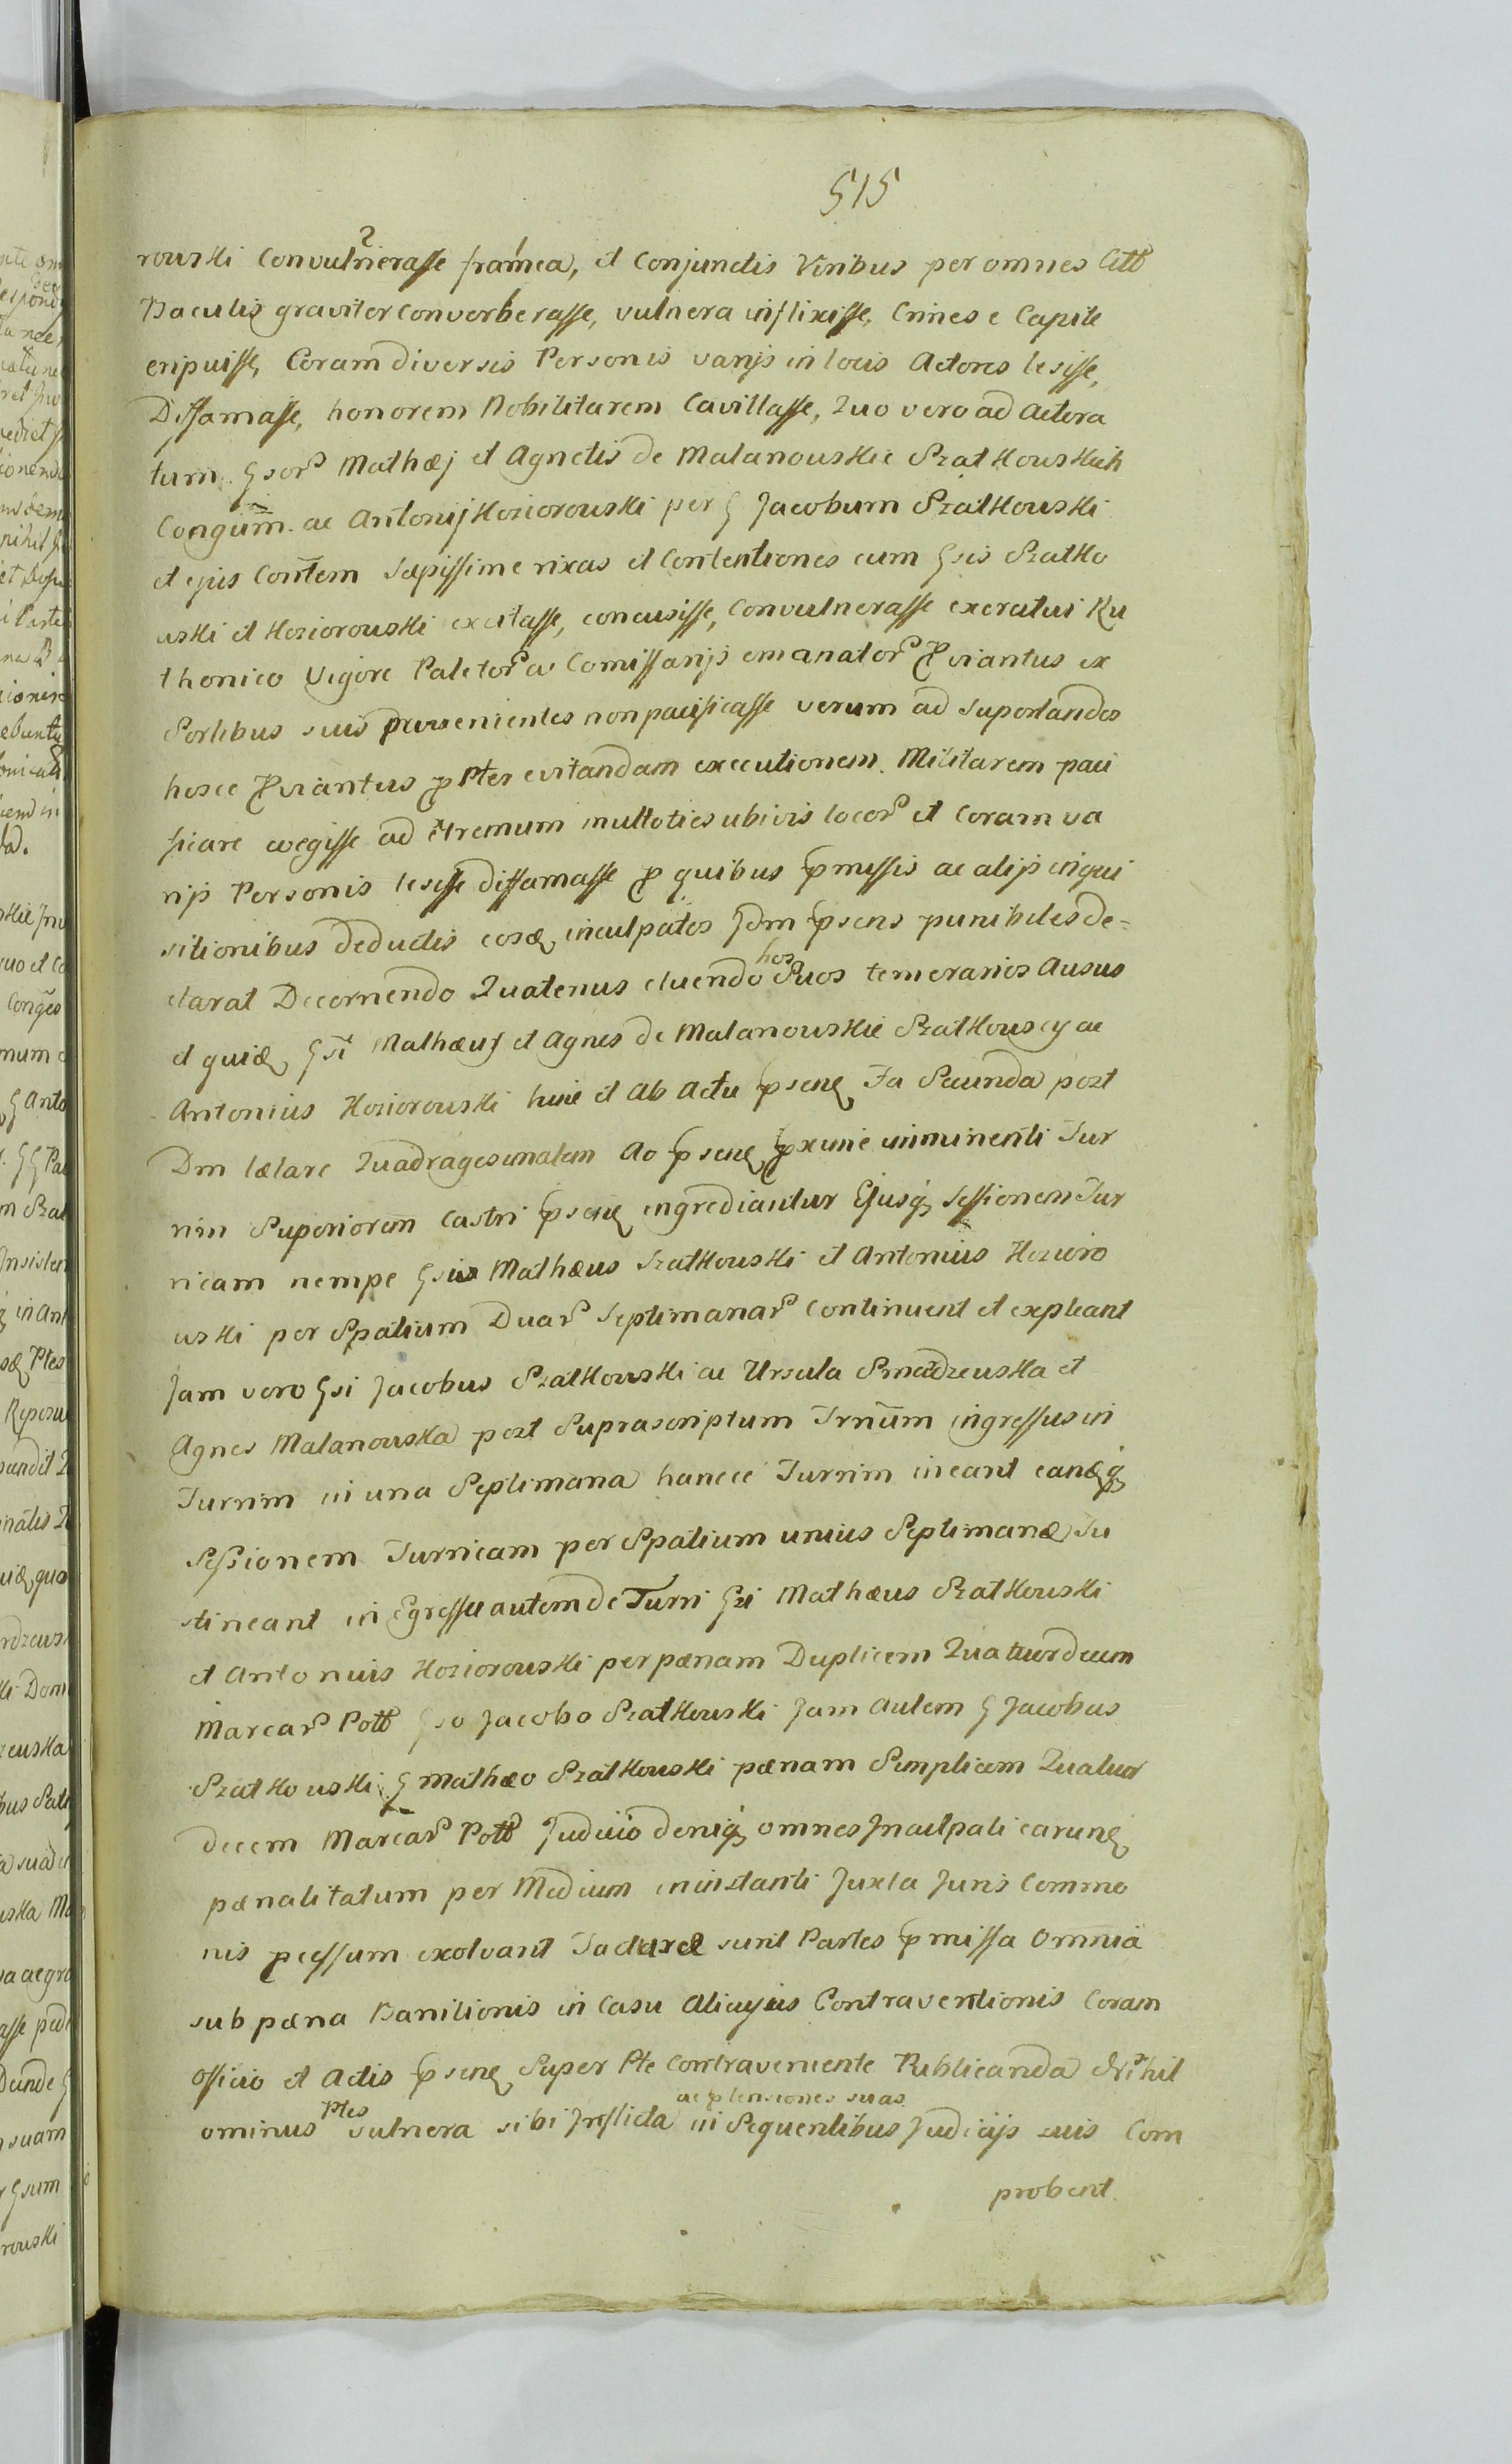 515
rowski Convulnerasse framea, et Conjunctis Viribus per omnes Cittos
Baculis graviter converberasse, vulnera inflixisse, Crines e Capite
eripuisse, Coram diversis Personis varijs in locis Actores lesisse,
Diffamasse, honorem Nobilitarem Cavillasse, Quo vero ad Actora
tum Gsor Mathæj et Agnetis de Malanouskie SzatKouskich
Congum. ac Antonij Koziorouski per G Jacobum SzatKouski
et ejus Contem sæpissime rixas et Contentiones cum Gsis SzatKo
uski et Koziorouski excitasse, concusisse, Convulnerasse exercitui Ru
thenico Vigore Palctor a Comissarijs emanator Pviantus ex
Sortibus suis provenientes non pacificasse verum ad Suportandos
hosce Pviantus p Ptes evitandam executionem Militarem paci
ficare coegisse ad Extremum multoties ubivis locor et Coram va
rijs Personis lesisse diffamasse p quibus pmissis ac alijs inqui
sitionibus deductis eosq inculpatos Jdm psens punibiles de=
clarat Decernendo Quatenus eluendo hos Suos temerarios Ausus
et quidq Gsi Mathæus et Agnes de Malanouskie SzatKouscy ac
Antonius Koziorouski hinc et Ab Actu psenq Fa Secunda post
Dm lætare Quadragesimalem Ao psenq pxime imminenti Tur
rim Superiorem Castri psenq ingrediantur Ejusq Sessionem Tur
ricam nempe Gsus Mathæus SzatKouski et Antonius Kozioro
uski per Spatium Duar Septimanar Continuent et expleant
Jam vero Gsi Jacobus SzatKouski ac Ursula Smardzeuska et
Agnes Malanouska post Suprascriptum Trnum ingressus in
Turrim in una Septimana hancce Turrim ineant eandq
Sessionem Turricam per Spatium unius Septimanæ Su
stineant in Egressu autem de Turri Gsi Mathæus SzatKouski
et Antonius Koziorouski per pænam Duplicem Quatuordecim
Marcar Poll Gso Jacobo SzatKouski Jam Autem G Jacobus
SzatKouski G Mathæo SzatKouski pænam Simplicem Quatuor
decem Marcar Poll Judicio deniq omnes Jnculpati earunq
pænalitatum per Medium in instanti Juxta Juris Commu
nis pcessum exolvant Facturæ sunt Partes pmissa Omnia
sub pæna Banitionis in Casu Alicujus Contraventionis Coram
Officio et Actis psenq Super Pte Contraveniente Publicanda Nihil
ominus Ptes vulnera sibi Jnflicta ac ptensiones suas in Sequentibus Judicijs suis Com
probent.